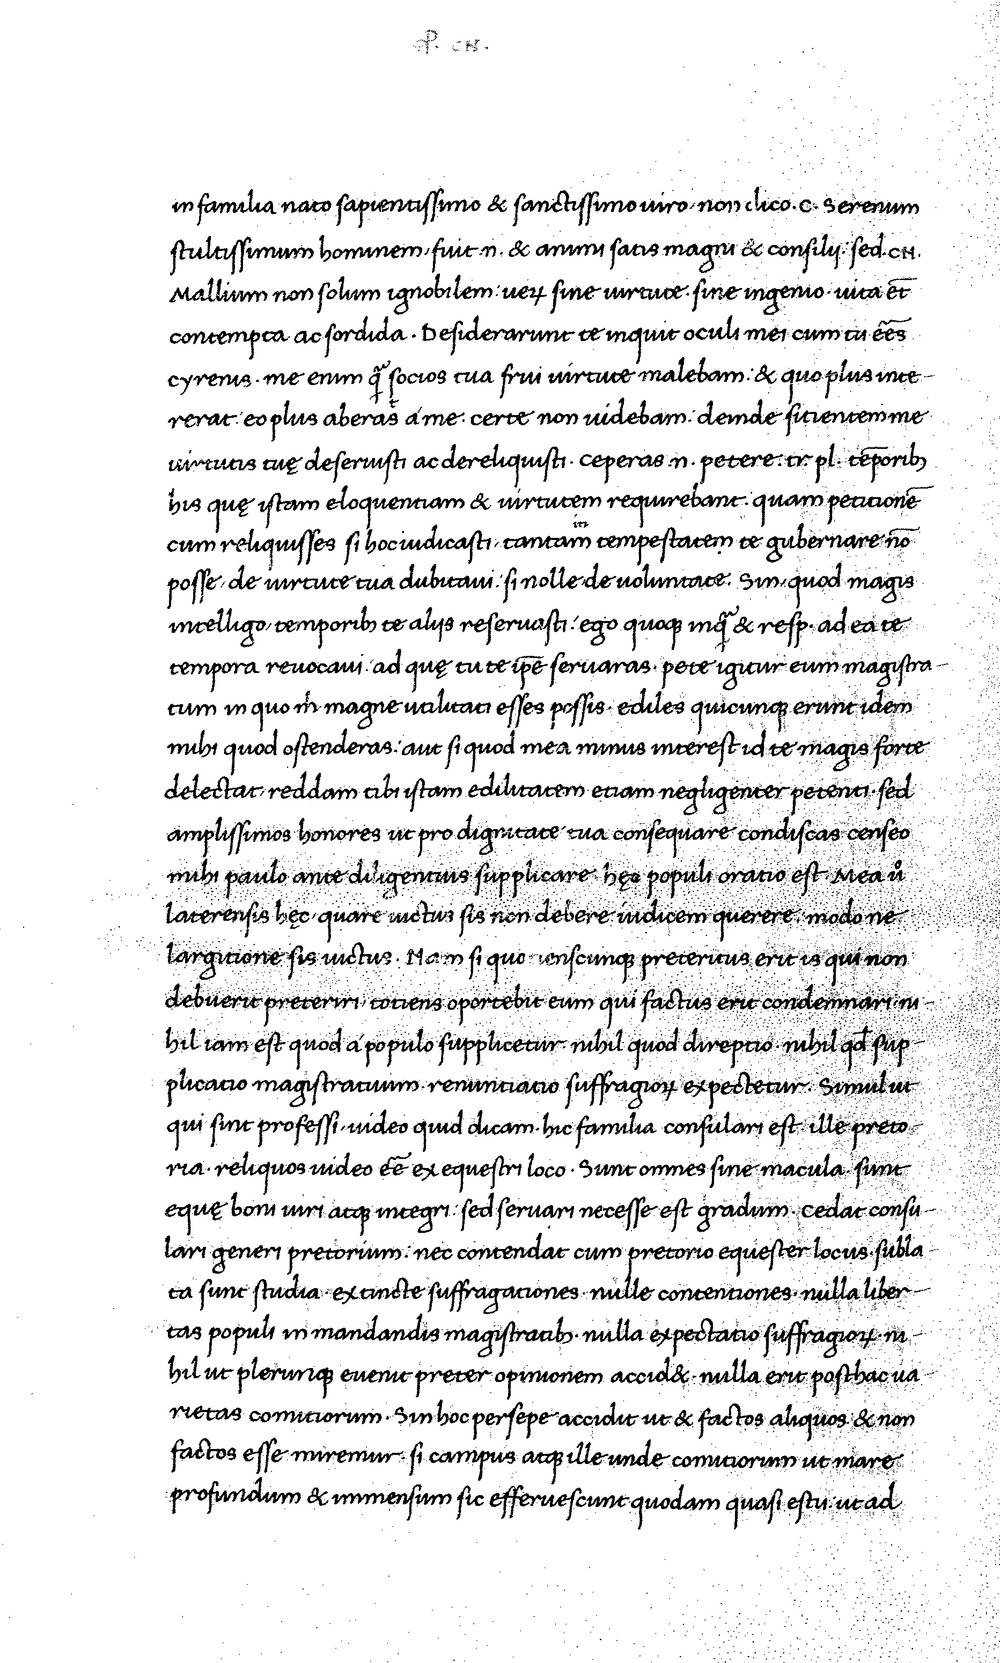 P. CN.
in familia nato sapientissimo & sanctissimo uiro, non dico. C. Serenum
stultissimum hominem, fuit .n. & animi satis magni & consilij: sed. CN.
Mallium non solum ignobilem: ueꝝ sine uirtute. sine ingenio. uita et̄
contempta ac sordida. Desiderarunt te inquit oculi mei cum tu ēēs
cyrenis. me enim q̃ socios tua frui uirtute malebam: & quo plus inte-
rerat: eo plus aberas a me: certe non uidebam. deinde sitientem me
uirtutis tuę deseruisti ac dereliquisti. Ceperas .n. petere. tr. pl. tēporib;
his quę istam eloquentiam & uirtutem requirebant. quam petitionē
cum reliquisses si hoc iudicasti, tantam in tempestatem te gubernare nō
posse, de uirtute tua dubitaui: si nolle de uoluntate. Sin, quod magis
intelligo, temporib; te alijs reseruasti: ego quoqꝫ inq̃ & resp. ad ea te
tempora reuocaui. ad quę tu te ip̄e seruaras. pete igitur eum magistra-
tum in quo m̄ magne utilitati esses possis. ediles quicunqꝫ erunt idem
mihi quod ostenderas: aut si quod mea minus interest id te magis forte
delectat, reddam tibi istam edilitatem etiam negligenter petenti. sed
amplissimos honores ut pro dignitate tua consequare condiscas censeo
mihi paulo ante diligentius supplicare. hęc populi oratio est. Mea ů
laterensis hęc, quare uictus sis non debere iudicem querere. modo ne
largitione sis uictus. Nam si quo iescunqꝫ preteritus erit is qui non
debuerit preteriri, totiens oportebit eum qui factus erit condemnari. ni-
hil iam est quod a populo supplicetur. nihil quod direptio. nihil qd̄ sup-
plicatio magistratuum. renuntiatio suffragioꝝ expectetur. Simul ut
qui sint professi, uideo quid dicam. hic familia consulari est. ille preto-
ria. reliquos uideo ēē ex equestri loco. Sunt omnes sine macula. sunt
equę boni uiri atqꝫ integri: sed seruari necesse est gradum. Cedat consu-
lari generi pretorium. nec contendat cum pretorio equester locus. subla-
ta sunt studia. extincte suffragationes. nulle contentiones. nulla liber-
tas populi in mandandis magistratib;. nulla expectatio suffragioꝝ. ni-
hil ut plerunqꝫ euenit preter opinionem accid&. nulla erit posthac ua-
rietas comitiorum. Sin hoc persepe accidit ut & factos aliquos & non
factos esse miremur. si campus atqꝫ ille unde comitiorum ut mare
profundum & immensum sic efferuescunt quodam quasi estu. ut ad